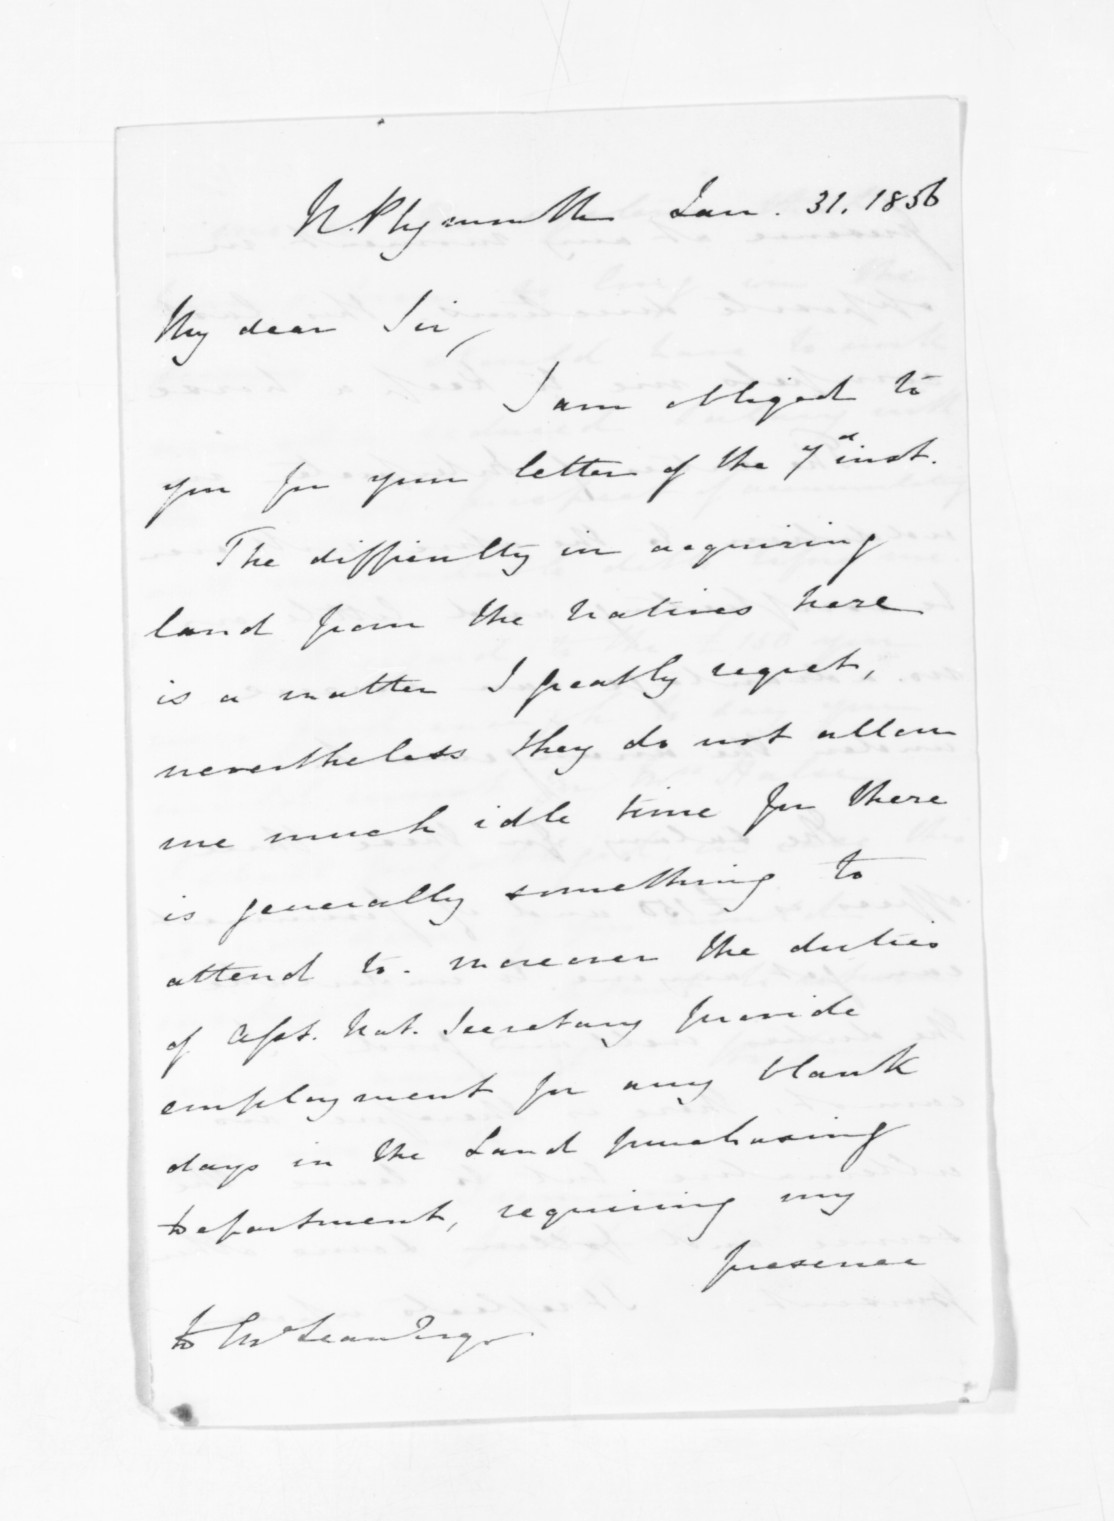 N. Plymouth Jan. 31. 1856
My dear Sir,
I am obliged to
you for your letter of the 7th inst.
The difficulty in acquiring
land from the natives here
is a matter I greatly regret,
nevertheless they do not allow
me much idle time for there
is generally something to
attend to. moreover the duties
of Asst. Nat. Secretary provide
employment for any blank
days in the Land purchasing
Department, requiring my
presence
D McLean Esqr